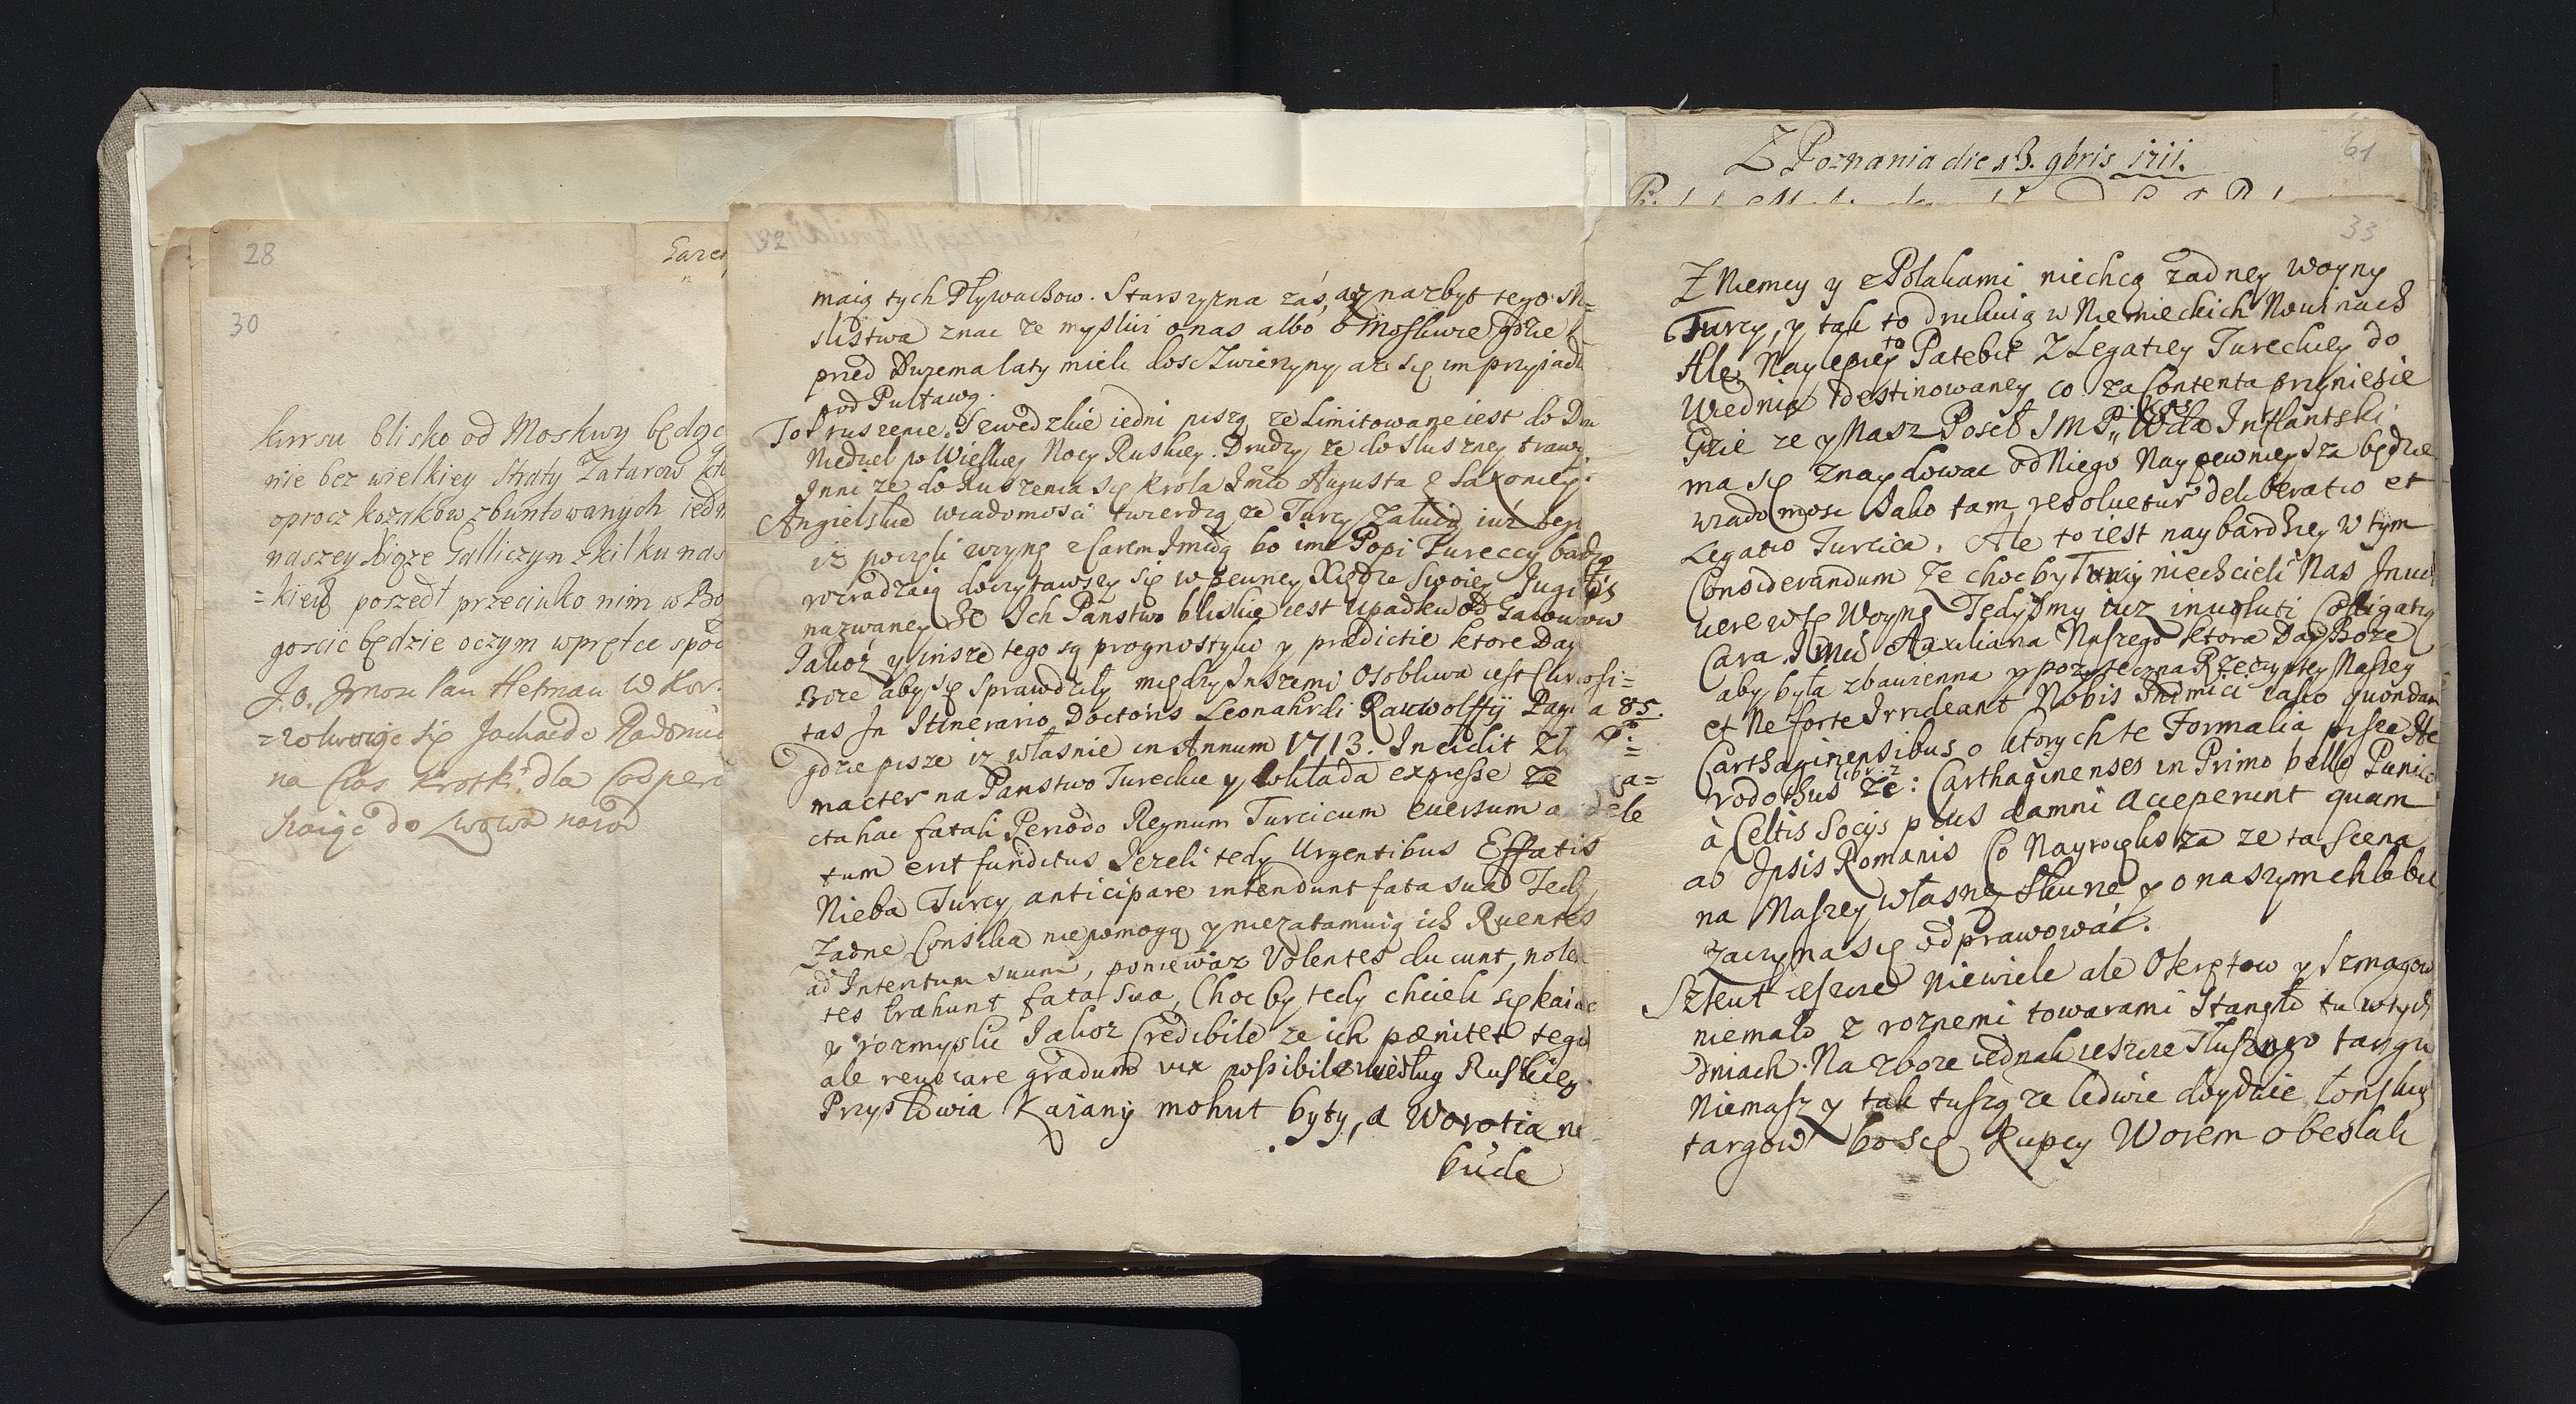 28
30
Gazet
kursu blisko od Moskwy będąc
nie bez wielkiey straty Tatarow
oprocz kozakow zbuntowanych iedn
naszey Xiąze Galliczyn z kilku nas
=kieg poszedł przeciwko nim w Bo
goscic będzie oczym wprętce spod
J.O. Jmosc Pan Hetman W Kor.
=rolwuiąc się Jachac do Radomia
na Czas krotki dla
do Lwowa nazad
32
maią tych Pływachow. Starszyzna zaś, aż nazbyt tego My=
slistwa znac ze myslisi o nas albo o Moskwie gdzie
przed Dwiema laty mieli dosc Zwierzyny az się im przyiadła
pod Pułtawą.
To ruszenie Szwedzkie iedni piszą ze Limitowane iest do Du
Niedziel po Wielkiey Nocy Ruskiey. Drudzy ze do słuszney trawy.
Inni ze do Ruszenia się Krola Jmci Augusta z Saxoniey.
Angielskie wiadomosci twierdzą ze Turcy Załuią iuż tego
iż poczęli woynę z Carem Jmcią bo im Popi Tureccy bardzo
rozradzaią doczytawszy się w pewney Xiędze Swoiey Jugitis
nazwaney Ze Ich Panstwo bliskie iest upadku od Gaurow
Jakoż y insze tego są prognostyki y prædictie ktore Day
Boze aby się sprawdziły między Inszemi Osobliwa iest Curiosi=
tas In Itinerario Doctoris Leonahrdi Rauwolffij Pagina 85.
gdzie pisze iz własnie in Annum 1713. Incidit
macter na Panstwo Tureckie y wkłada expresse ze
cta hac fatali Periodo Regnum Turcicum euersum a dele
tum erit funditus Jezeli tedy Urgentibus Effatis
Nieba Turcy anticipare intendunt fata sua Tedy
Zadne Consilia niepomogą y niezatamuią ich Ruentes
ad Intentum suum, poniewaz Volentes ducunt, nolen
tes trahunt fata sua, Choc by tedy chcieli się kaiac
y rozmyslic Jakoz Credibile ze ich pænitet tego
ale reuocare gradum vix possibile według Ruskiego
Przysłowia Kaiany mohut byty, a Worotia ne
bude
61
Z Poznania die 13. 9bris 1711.
33
Z Niemcy y z Polakami niechcą zadney woyny
Turcy, y tak to drukuią w Niemieckich Nowinach
Ale Naylepiey to Patebit Z Legatiey Tureckiey do
Wiednia destinowaney co za Contenta przyniesie
Gdzie ze y Nasz Poseł JMP. Wda Inflantski
ma się znaydowac od Niego Naypewnieysza będzie
wiadomosc Jako tam resoluetur deliberatio et
Legatio Turcica. Ale to iest naybardziey w tym
Considerandum Ze choc by Turcy niechcieli Nas Inuol
uere w tę Woynę Tedysmy iuz inuoluti Colligatią
Cara Jmci Auxiliana Naszego ktora Day Boze
aby była zbawienna y pozyteczna Rzeczyptey Naszey
et Ne forte Irrideant Nobis Inimici iako quondam
Carthaginensibus o ktorych te Formalia pisze He
rodothus libr. 2 Ze: Carthaginenses in Primo bello Punico
à Celtis Socijs plus damni acceperunt quam
ab Ipsis Romanis Co Nayrozksza ze ta scena
na Naszey własney skurze y o naszym chlebie
zaczyna się odprawować.
Szkut ieszcze niewiele ale Okrętow y Szmagow
niemało z roznemi towarami Stanęło tu w tych
dniach. Na zboze iednak ieszcze Słusznego targu
Niemasz y tak tuszą ze ledwie doydzie łonskich
targow bo się Kupcy Worem obesłali